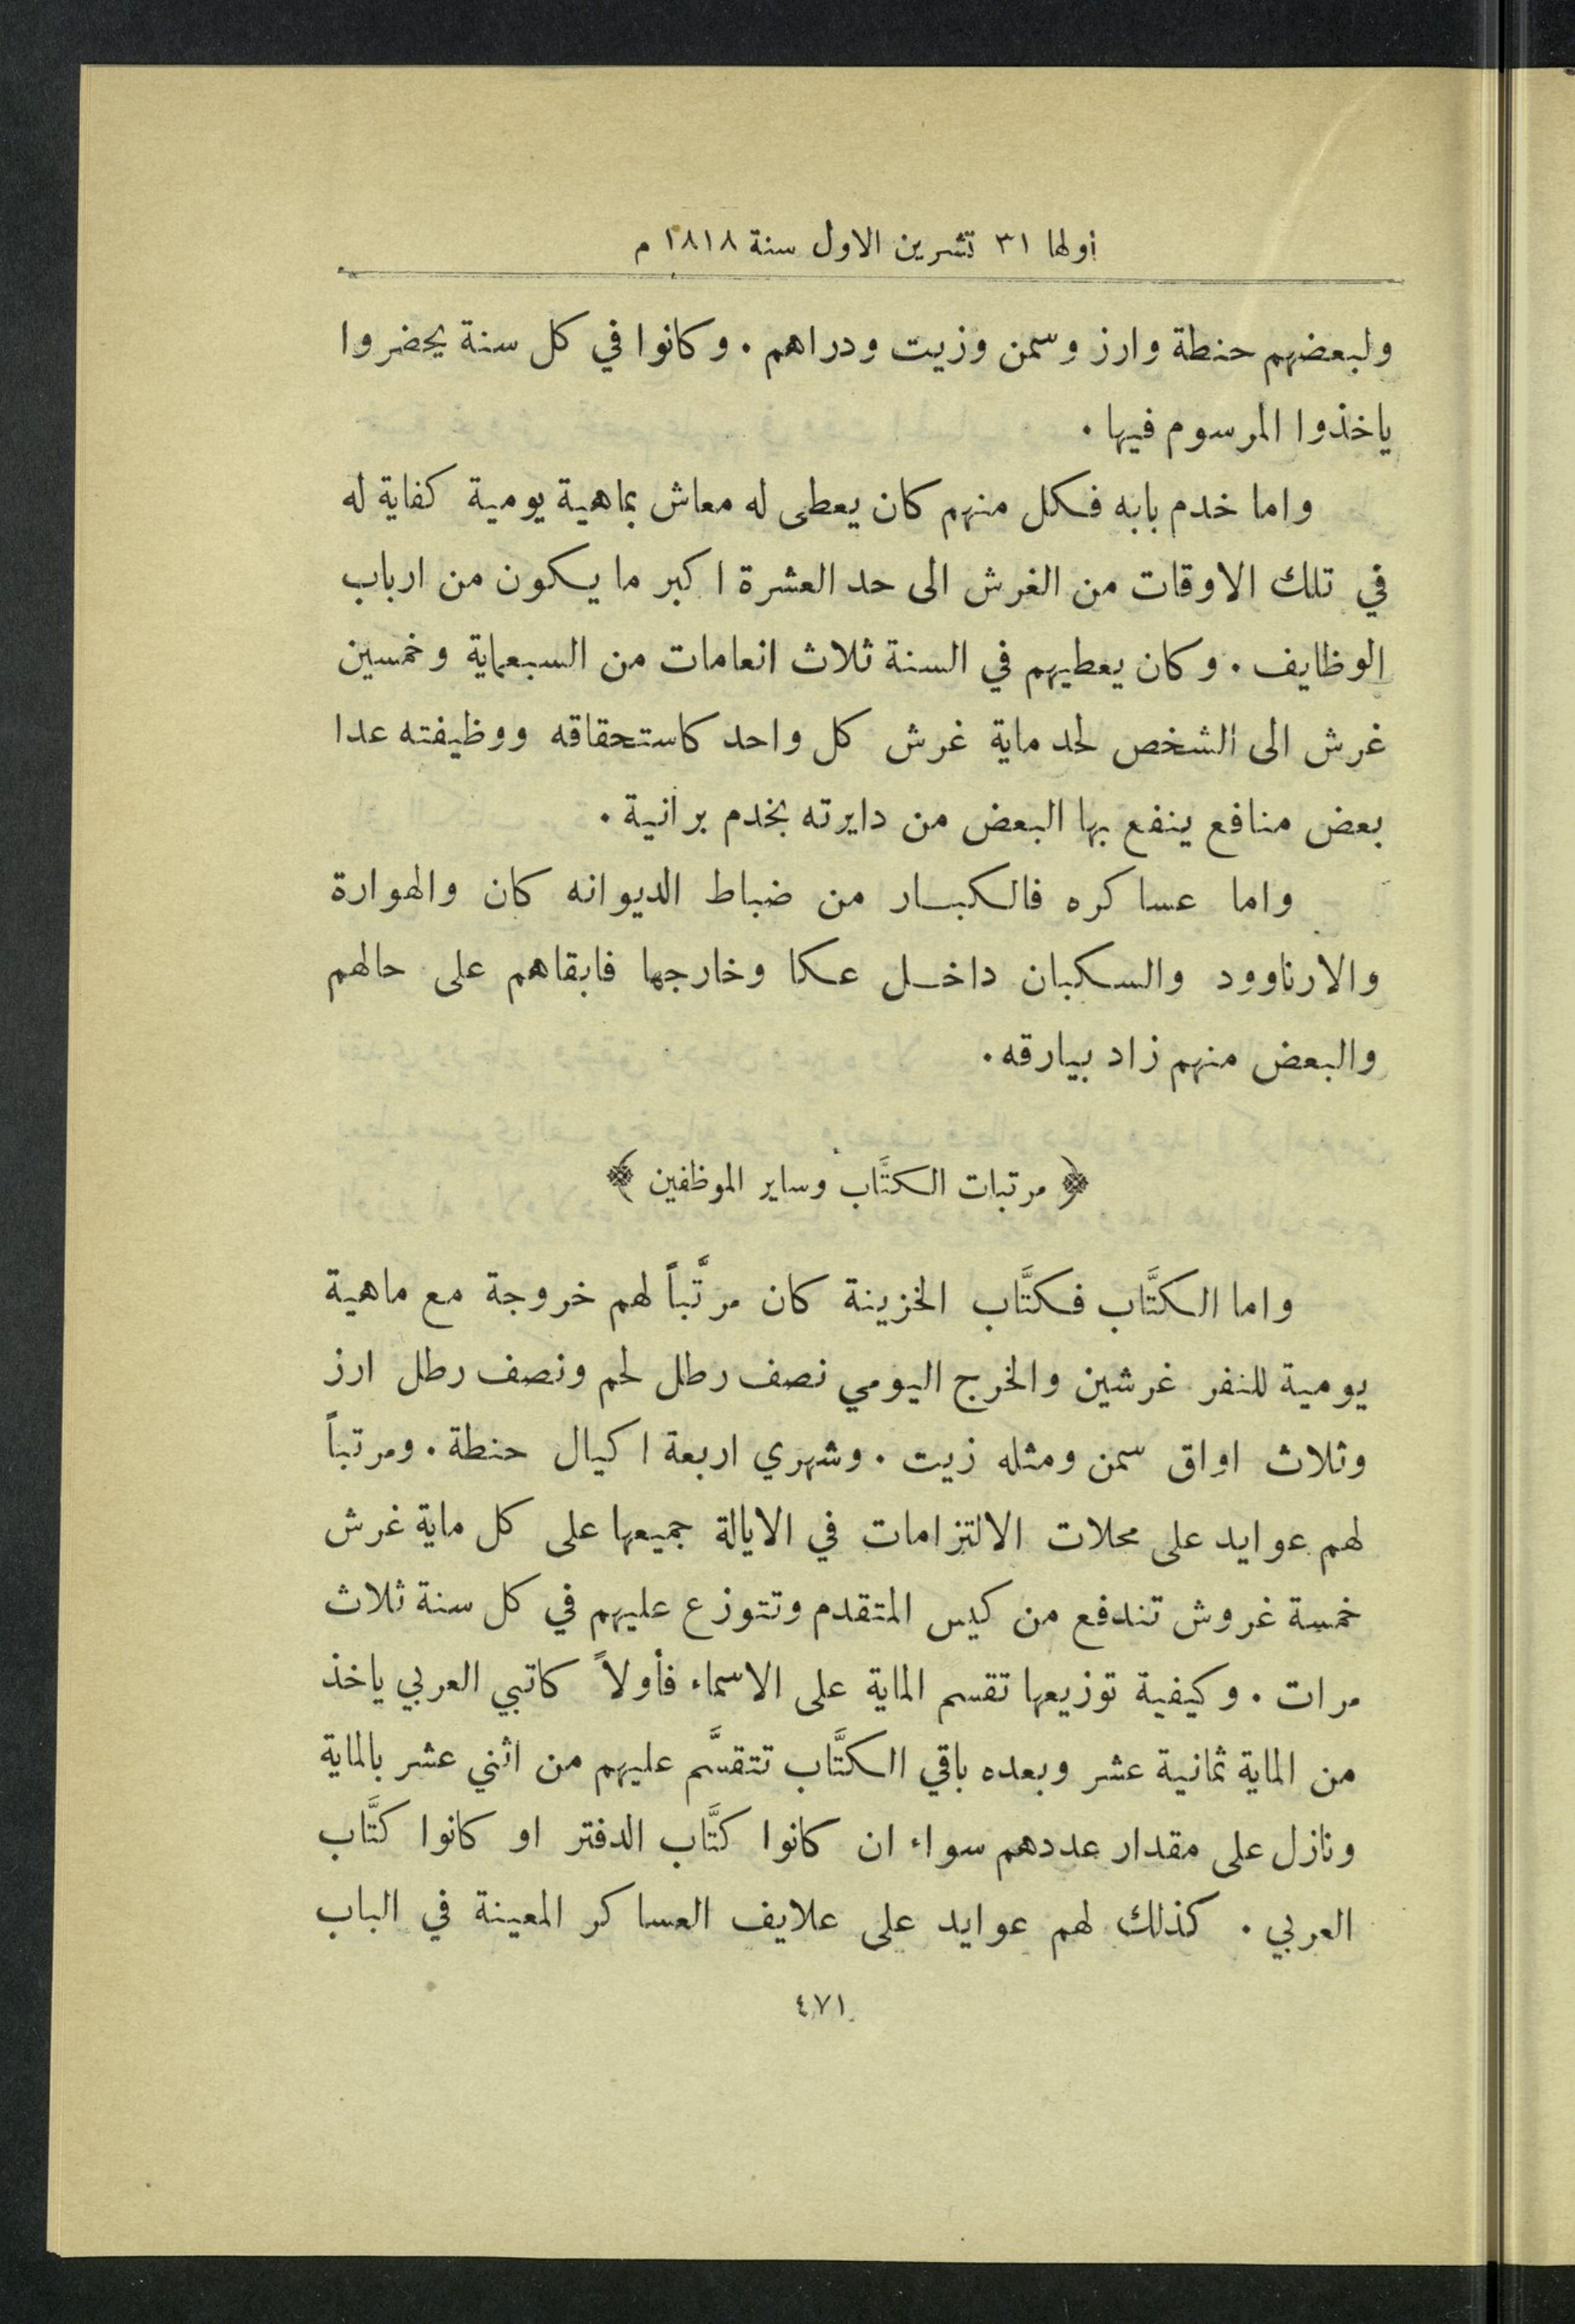 اولها ٣١ تشرين الاول سنة ١٨١٨ م
ولبعضهم حنطة وارز وسمن وزيت ودراهم . وكانوا في كل سنة يحضروا
ياخذوا المرسوم فيها .
واما خدم بابه فكل منهم كان يعطى له معاش بماهية يومية كفاية له
في تلك الاوقات من الغرش الى حد العشرة اكبر ما يكون من ارباب
الوظايف . وكان يعطيهم في السنة ثلاث انعامات من السبعماية وخمسين
غرش الى الشخص لحد ماية غرش كل واحد كاستحقاقه ووظيفته عدا
بعض منافع ينفع بها البعض من دايرته بخدم برانية .
واما عساكره فالكبار من ضباط الديوانه كان والهوارة
والارناوود والسكبان داخل عكا وخارجها فابقاهم على حالهم
والبعض منهم زاد بيارقه .
﴿ مرتبات الكتَّاب وساير الموظفين ﴾
واما الكتَّاب فكتَّاب الخزينة كان مرتَّباً لهم خروجة مع ماهية
يومية للنفر غرشين والخرج اليومي نصف رطل لحم ونصف رطل ارز
وثلاث اواق سمن ومثله زيت . وشهري اربعة اكيال حنطة . ومرتباً
لهم عوايد على محلات الالتزامات في الايالة جميعها على كل ماية غرش
خمسة غروش تندفع من كيس المتقدم وتتوزع عليهم في كل سنة ثلاث
مرات . وكيفية توزيعها تقسم الماية على الاسماء فأولاً كاتبي العربي ياخذ
من الماية ثمانية عشر وبعده باقي الكتَّاب تتقسَّم عليهم من اثني عشر بالماية
ونازل على مقدار عددهم سواء ان كانوا كتَّاب الدفتر او كانوا كتَّاب
العربي . كذلك لهم عوايد على علايف العساكر المعينة في الباب
٤٧١